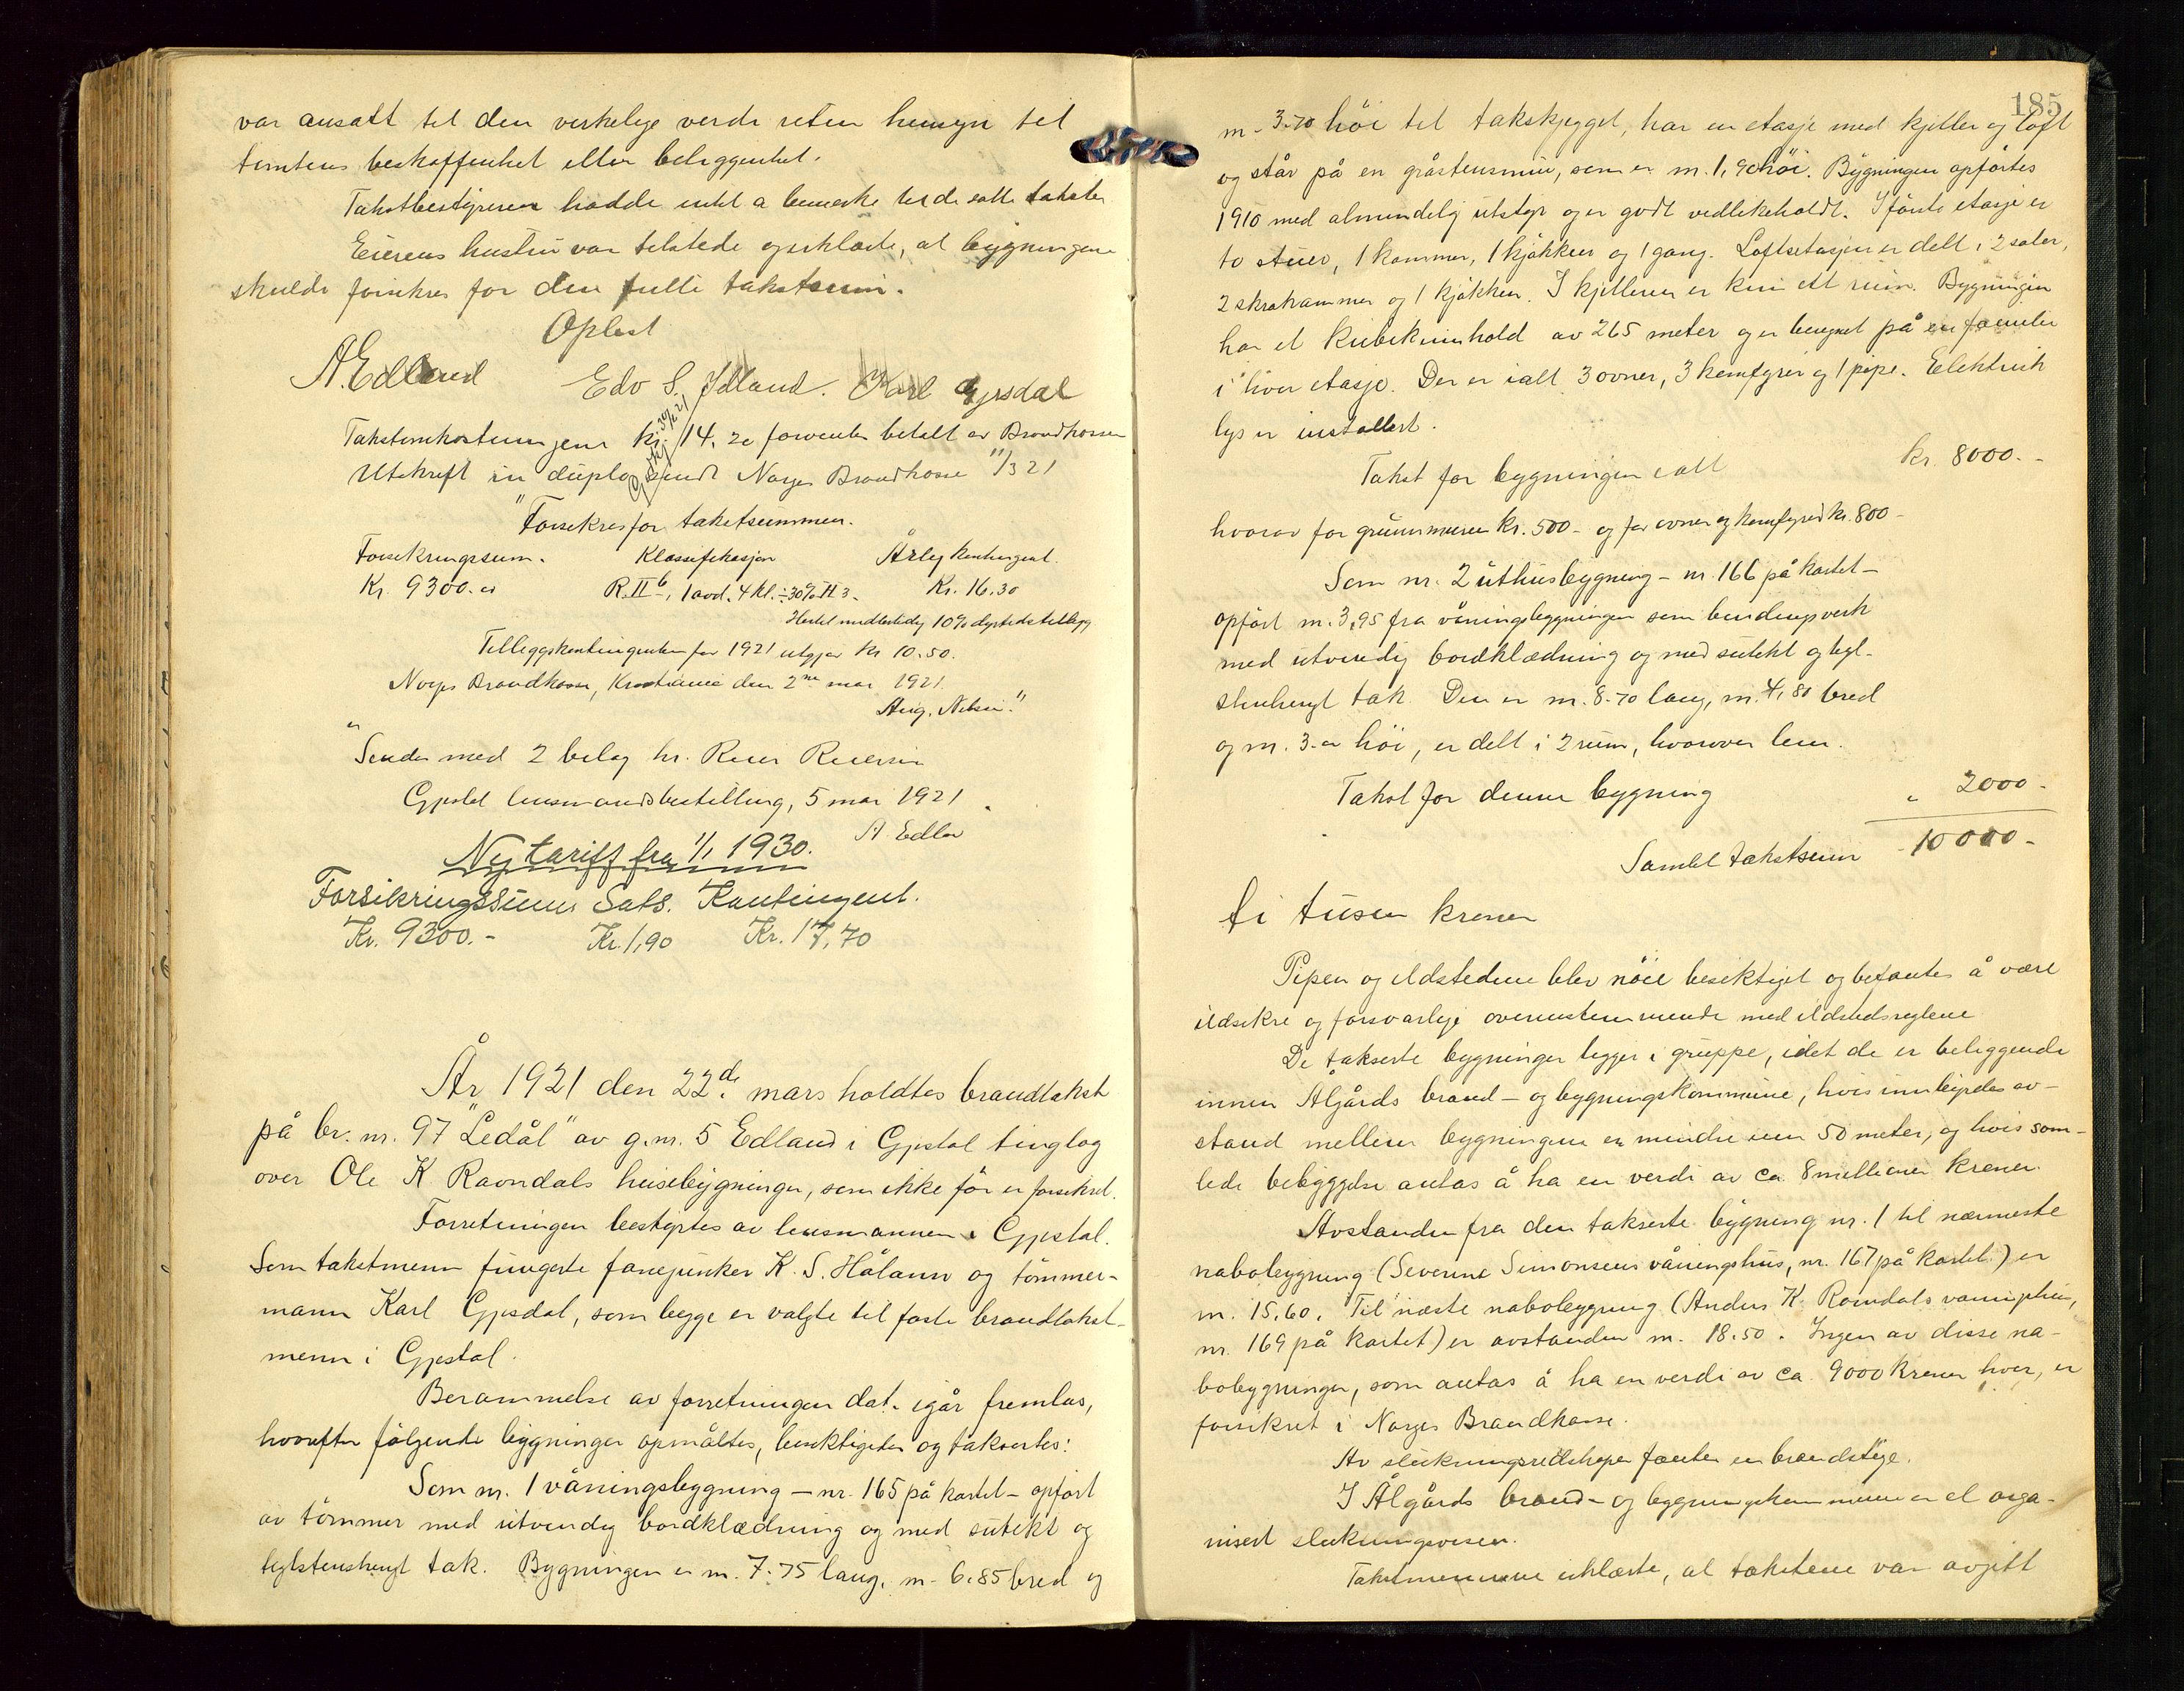 var ansatt til den virkelige verdi uten hensyn til
tomtens beskaffenhet eller beliggenhet.
Takstbestyreren hadde intet å bemerke til de satte takster
Eierens hustru var tilstede og erklærte, at bygningene
skulde forsikres for den fulle takstsum.
Oplest
A. Edland Edv S. Idland. Karl Gjesdal
Takstomkostningene kr. 14.20 forventes betalt av Brandkassen
Utskrift in duplo sendt Norges Brandkasse 11/3 21
"Forsikres for takstsummen.
Forsikringssum. Klassifikasjon Årlig kontingent.
Kr. 9300.00 R. II b, 1 avd. 4 kl. ÷ 30% H 3. Kr. 16.30
Hertil midlertidig 10% dyrtidstillegg
Tilleggskontingenten for 1921 utgjør kr 10.50.
Norges Brandkasse, Kristiania den 2 mai 1921.
Aug. Nilsen."
"Sendes med 2 bilag hr. Reier Reiersen
Gjestal lensmandsbestilling, 5 mai 1921.
A. Edland
Ny tariff fra 1/1 1930.
Forsikringssum Sats. Kontingent.
Kr. 9300.- Kr. 1,90 Kr. 17,70
År 1921 den 22de mars holdtes brandtakst
på br. nr. 97 "Ledål" av g.nr. 5 Edland i Gjestal tinglag
over Ole K Ravndals husebygninger, som ikke før er forsikret.
Forretningen bestyrtes av lensmannen i Gjestal.
Som takstmenn fungerte fanejunker K. S. Håland og tømmer-
mann Karl Gjesdal, som begge er valgte til faste brandtakst-
menn i Gjestal.
Berammelse av forretningen dat. igår fremlas,
hvorefter følgende bygninger opmåltes, besiktigedes og taksertes:
Som nr. 1 våningsbygning – nr. 165 på kartet – opført
av tømmer med utvendig bordklædning og med sutekt og
teglstenshengt tak. Bygningen er m. 7.75 lang, m. 6.85 bred og
185
m. 3.70 høi til takskjegget, har en etasje med kjeller og loft
og står på en gråstensmur, som er m. 1,90 høi. Bygningen opførtes
1910 med almindelig utstyr og er godt vedlikeholdt. I første etasje er
to stuer, 1 kammer, 1 kjøkken og 1 gang. Loftsetasjen er delt i 2 saler,
2 skrakammer og 1 kjøkken. I kjelleren er kun ett rum. Bygningen
har et kubikinnhold av 265 meter og er beregnet på en familie
i hver etasje. Der er ialt 3 ovner, 3 komfyrer og 1 pipe. Elektrisk
lys er installert.
Takst for bygningen ialt kr. 8000.-
hvorav for grunnmuren kr. 500- og for ovner og komfyrer kr. 800-
Som nr. 2 uthusbygning – nr. 166 på kartet –
opført m. 3,95 fra våningsbygningen som bindingsverk
med utvendig bordklædning og med sutekt og tegl-
stenhengt tak. Den er m. 8.70 lang, m. 4,80 bred
og m. 3.00 høi, er delt i 2 rum, hvorover lem.
Takst for denne bygning " 2000-
Samlet takstsum 10000-
ti tusen kroner
Pipen og ildstedene blev nøie besiktiget og befantes å være
ildsikre og forsvarlige overensstemmende med ildstedsreglene
De takserte bygninger ligger i gruppe, idet de er beliggende
innen Ålgårds brand- og bygningskommune, hvis innbyrdes av-
stand mellem bygningene er mindre enn 50 meter, og hvis sam-
lede bebyggelse antas å ha en verdi av ca. 8 millioner kroner.
Avstanden fra den takserte bygning nr. 1 til nærmeste
nabobygning (Severine Simonsens våningshus, nr. 167 på kartet) er
m. 15.60. Til næste nabobygning (Anders K. Ravndals våningshus,
nr. 169 på kartet) er avstanden m. 18.50. Ingen av disse na-
bobygninger, som antas å ha en verdi av ca. 9000 kroner hver, er
forsikret i Norges Brandkasse.
Av slukningsredskaper fantes en brandstige.
I Ålgårds brand- og bygningskommune er et orga-
nisert slukningsvesen.
Takstmennene erklærte, at takstene var avgitt